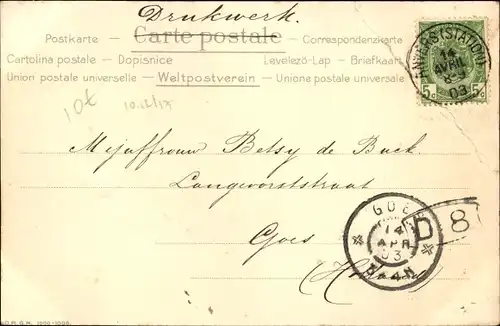 Drukwerk.
Postkarte – Carte postale – Correspondenzkarte
Cartolina postale – Dopisnice Levelező-Lap – Briefkaart
Union postale universelle – Weltpostverein – Unione postale universale
10€ 10.12/13
ANVERS (STATION)
14
AVRIL
03
5c 5c
Mejuffrouw Betsy de Back.
Langevorststraat
Goes
(Holland)
GOES
14
APR
03
D 8
D.R.G.M.